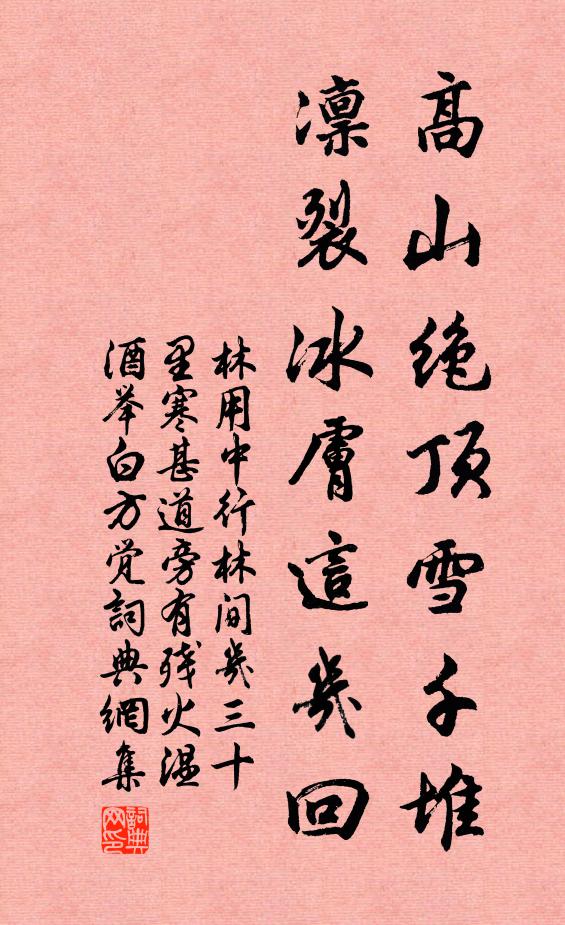 高山绝顶雪千堆
凛裂冰膚這幾回
林用中行林间幾三十
里寒甚道旁有残火温
酒举白方觉詞典網集
詞典网印